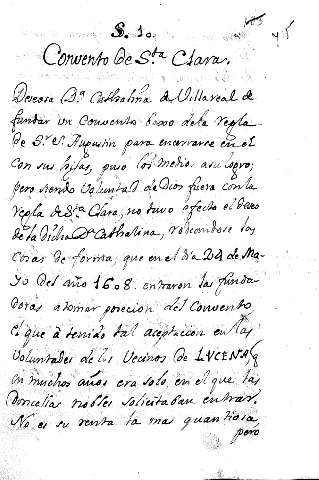 S. 10.
Convento de Sta Clara.
Deseosa Da Cathalina de Villareal de
fundar un Convento baxo de la regla
de Sr Sn Augustin para encerrarse en el
con sus hijas, puso los medios a su logro;
pero siendo Voluntad de Dios fuera con la
regla de Sta Clara, no tuvo efecto el deseo
de la dicha Da Cathalina, rodeandose las
cosas de forma, que en el dia 24 de Ma-
yo del año 1608. entraron las funda-
doras a tomar posecion del Convento
el que à tenido tal aceptacion en las
Voluntades de los Vecinos de LVCENA, q
en muchos años era solo, en el que las
Doncellas nobles solicitaban entrar.
No es su renta la mas quantiosa
pero